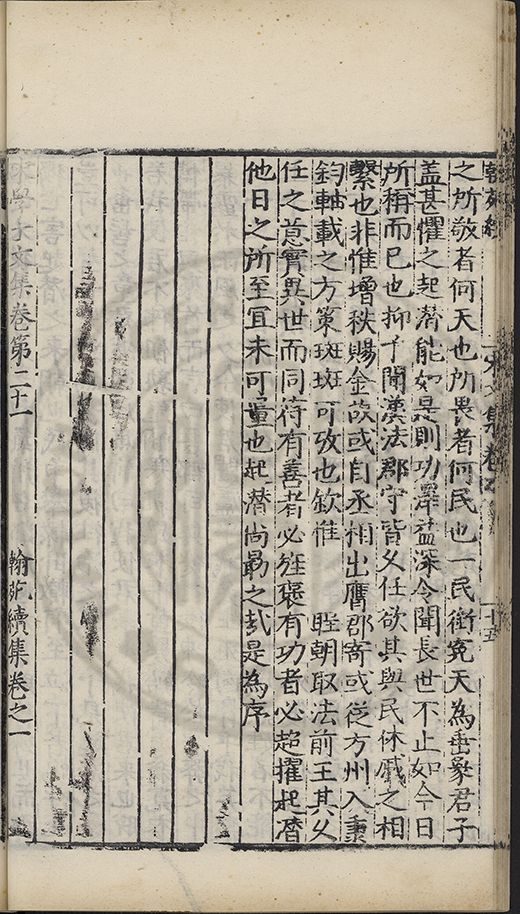 之所敬者何天也所畏者何民也一民銜寃天為垂象君子
盖甚懼之起濳能如是則功澤益深令聞長世不止如今日
所稱而已也抑予聞漢法郡守皆乆任欲其與民休戚之相
繫也非惟増秩賜金故或自丞相出膺郡寄或従方州入秉
鈞軸載之方策斑斑可攷也欽惟 聖朝取法前王其乆
任之意實異世而同符有善者必旌褒有功者必超擢起濳
他日之所至宜未可量也起濳尚勗之哉是為序
宋學士文集卷第二十一 翰苑續集卷之一
翰苑續
宋文集卷
十五